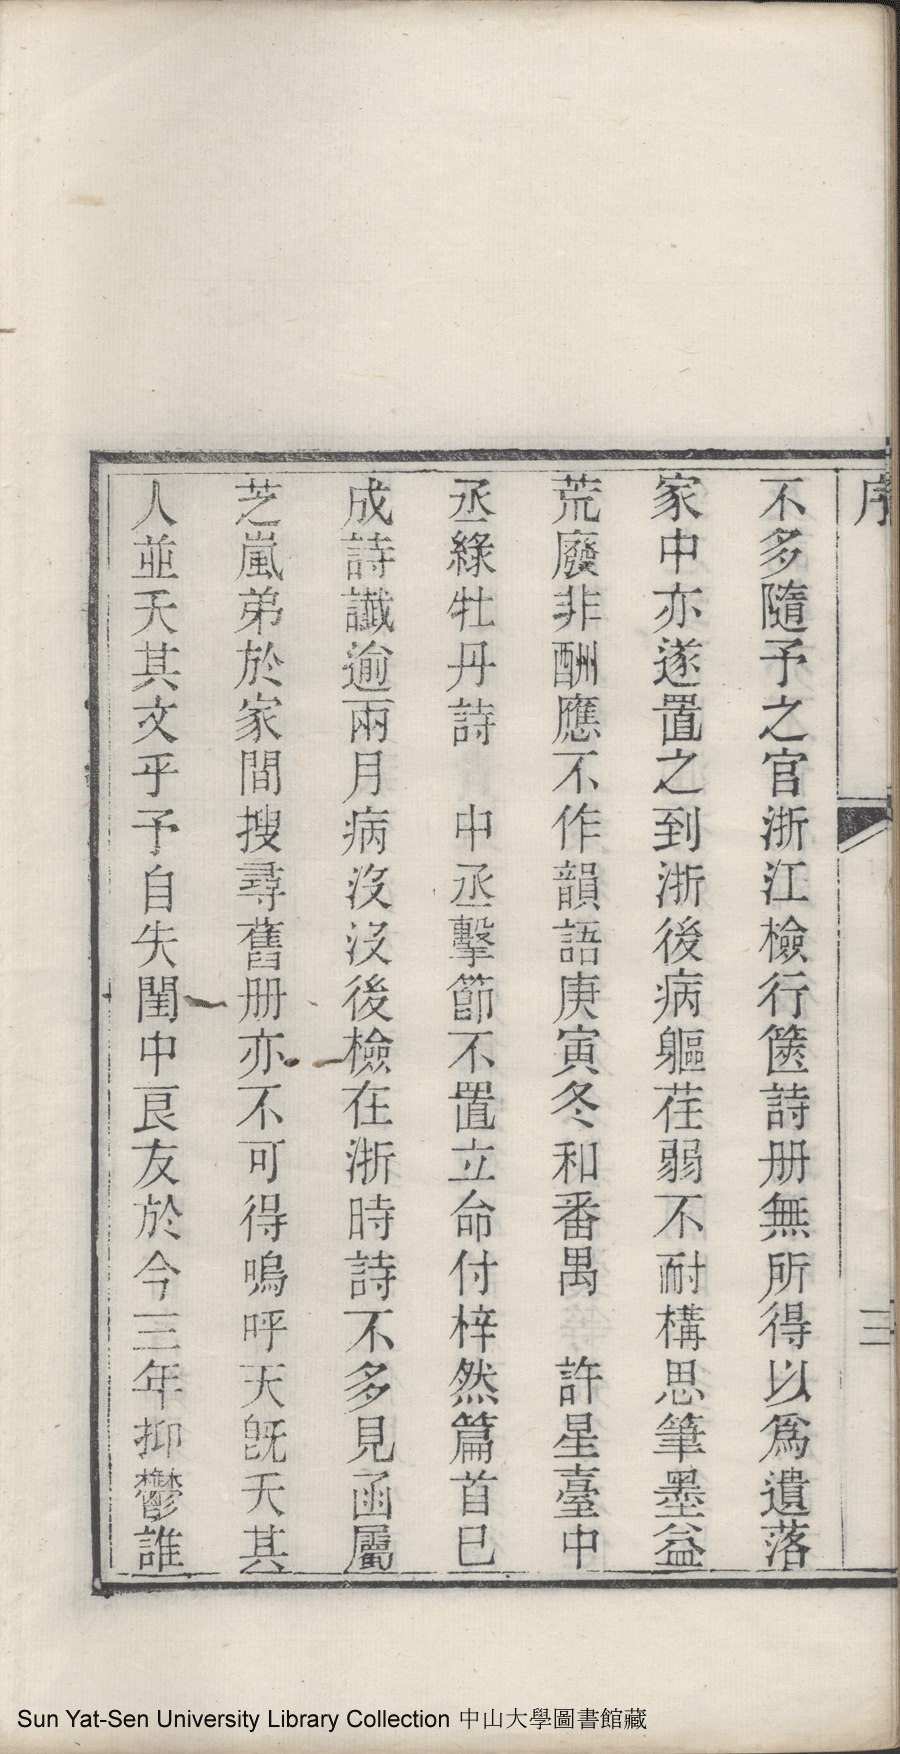 序
三
不多隨予之官浙江檢行篋詩册無所得以爲遺落
家中亦遂置之到浙後病軀荏弱不耐構思筆墨益
荒廢非酬應不作韻語庚寅冬和番禺　許星臺中
丞綠牡丹詩　中丞擊節不置立命付梓然篇首巳
成詩讖逾兩月病沒沒後檢在浙時詩不多見函屬
芝嵐弟於家間搜尋舊册亦不可得嗚呼天旣夭其
人並夭其文乎予自失閨中良友於今三年抑鬱誰
Sun Yat-Sen University Library Collection 中山大學圖書館藏